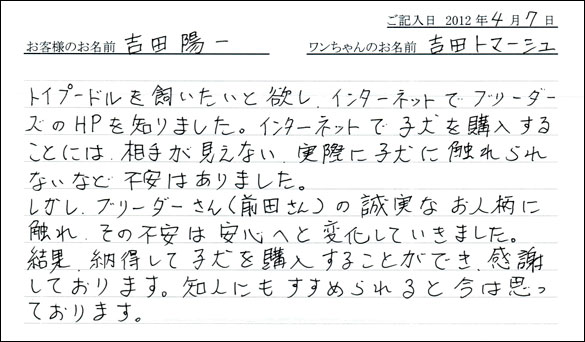 ご記入日 2012年4月7日
お客様のお名前 吉田陽一 ワンちゃんのお名前 吉田トマーシュ
トイプードルを飼いたいと欲し、インターネットでブリーダー
ズのHPを知りました。インターネットで子犬を購入する
ことには、相手が見えない、実際に子犬に触れられ
ないなど不安はありました。
しかし、ブリーダーさん(前田さん)の誠実なお人柄に
触れ、その不安は安心へと変化していきました。
結果、納得して子犬を購入することができ、感謝
しております。知人にもすすめられると今は思っ
ております。